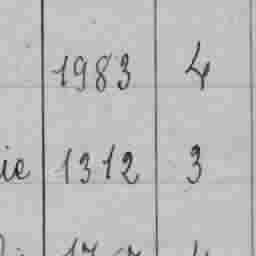 1983 4
ie 1312 3